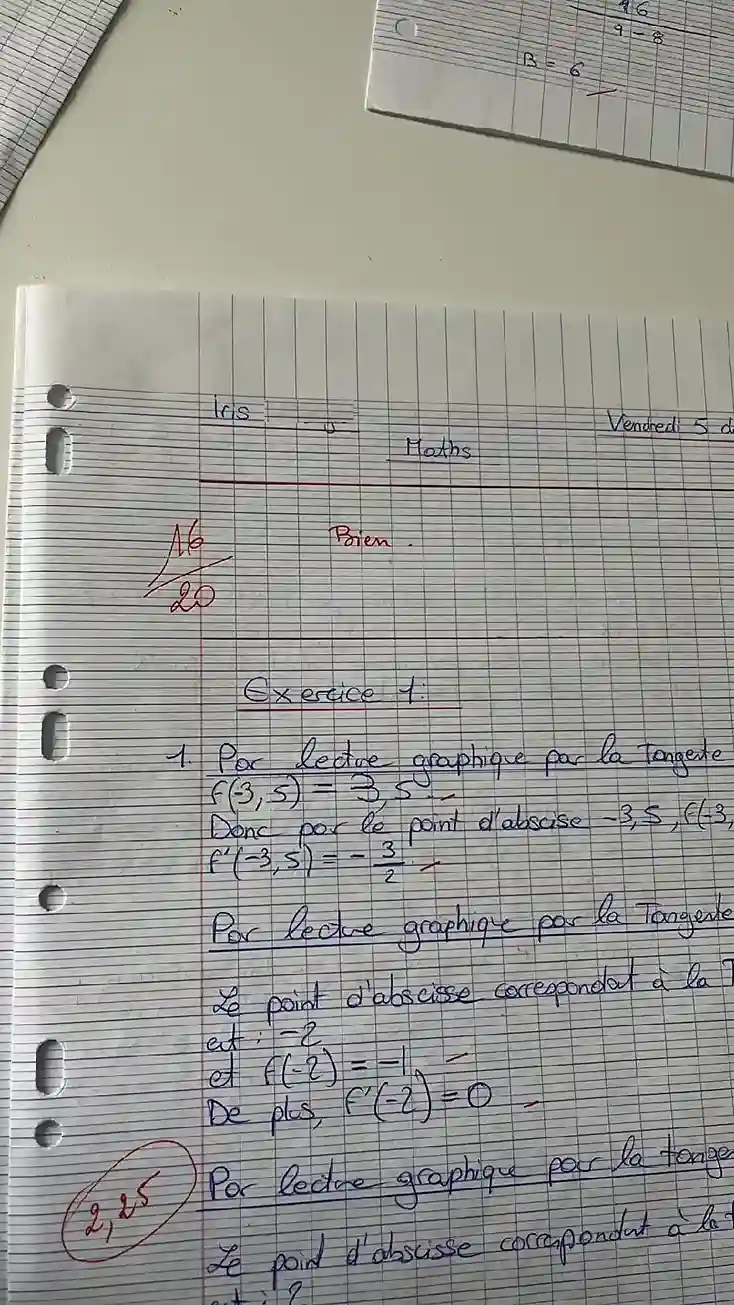 16
9 - 8
B = 6
Iris
Vendredi 5 d
Maths
16
20
Bien.
Exercice 1:
1. Par lecture graphique par la Tangente
f(-3,5) = 3,5
Donc par le point d'abscise -3,5, f(-3,
f'(-3,5) = - 3/2
Par lecture graphique par la Tangente
Le point d'abscisse correspondat à la T
est : -2
et f(-2) = -1
De plus, f'(-2) = 0
2,25
Par lecture graphique par la tange
Le point d'abscisse correspondat à la t